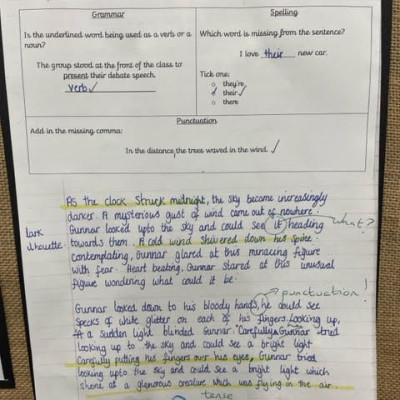 Grammar
Spelling
Is the underlined word being used as a verb or a
noun?
The group stood at the front of the class to
present their debate speech.
verb ✓
Which word is missing from the sentence?
I love their new car.
Tick one:
they're
their ✓
there
Punctuation
Add in the missing comma:
In the distance, the trees waved in the wind. ✓
As the clock struck midnight, the sky became increasingly
darker. A mysterious gust of wind came out of nowhere.
Gunnar looked upto the sky and could see IT heading what?
towards them. A cold wind shivered down his spine.
contemplating, Gunnar glared at this menacing figure
with fear. Heart beating, Gunnar stared at this unusual
figure wondering what could it be.
punctuation!
Gunnar looked down to his bloody hands, he could see
specks of white glitter on each of his fingers. Looking up,
a sudden light blinded Gunnar. Carefully Gunnar tried
looking up to the sky and could see a bright light
Carefully putting his fingers over his eyes, Gunnar tried
looking upto the sky and could see a bright light which
shone at a glamorous creature which was flying in the air.
tense